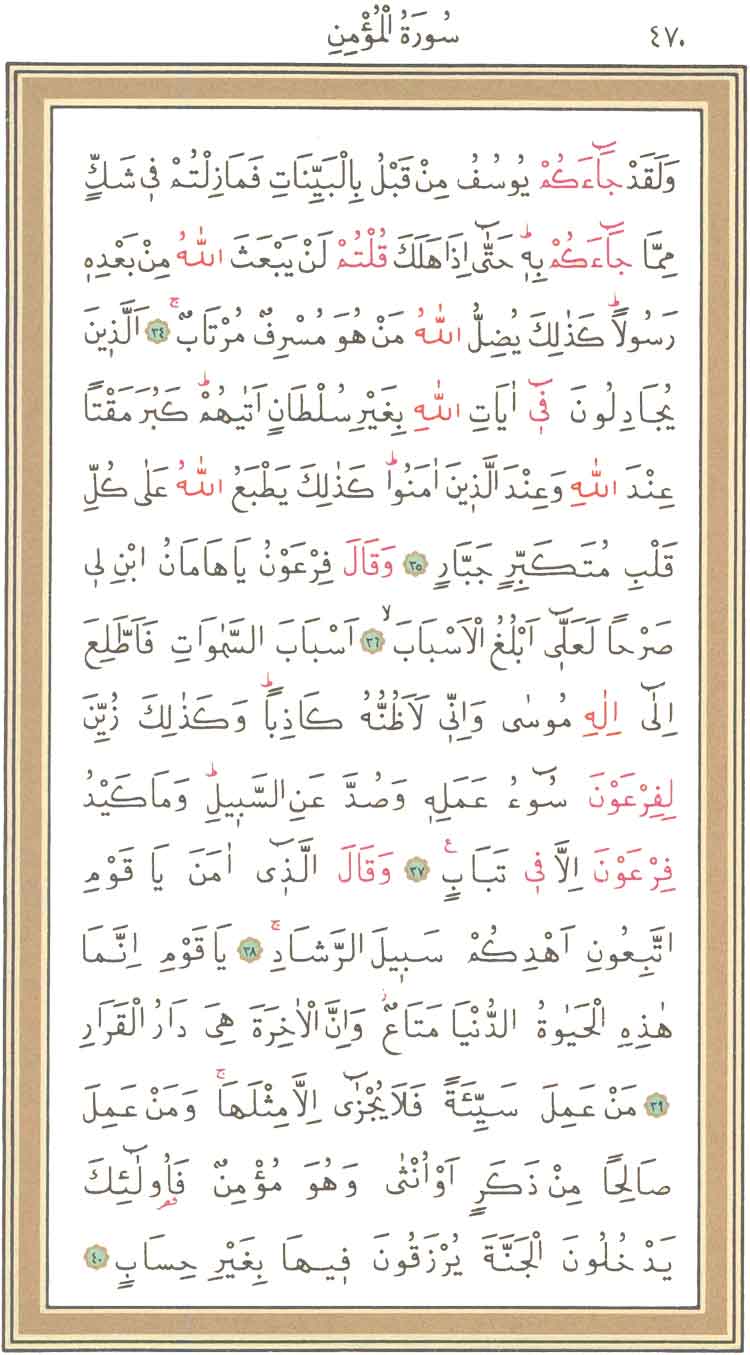 ٤٧٠ سُورَةُ الْمُؤْمِنِ
وَلَقَدْ جَٓاءَكُمْ يُوسُفُ مِنْ قَبْلُ بِالْبَيِّنَاتِ فَمَازِلْتُمْ ف۪ي شَكٍّ
مِمَّا جَٓاءَكُمْ بِه۪ۜ حَتّٰٓى اِذَا هَلَكَ قُلْتُمْ لَنْ يَبْعَثَ اللّٰهُ مِنْ بَعْدِه۪
رَسُولاًۜ كَذٰلِكَ يُضِلُّ اللّٰهُ مَنْ هُوَ مُسْرِفٌ مُرْتَابٌۚ ٣٤ اَلَّذ۪ينَ
يُجَادِلُونَ ف۪ٓي اٰيَاتِ اللّٰهِ بِغَيْرِ سُلْطَانٍ اَتٰيهُمْۜ كَبُرَ مَقْتًا
عِنْدَ اللّٰهِ وَعِنْدَ الَّذ۪ينَ اٰمَنُواۜ كَذٰلِكَ يَطْبَعُ اللّٰهُ عَلٰى كُلِّ
قَلْبِ مُتَكَبِّرٍ جَبَّارٍ ٣٥ وَقَالَ فِرْعَوْنُ يَا هَامَانُ ابْنِ ل۪ي
صَرْحًا لَعَلّ۪ٓي اَبْلُغُ الْاَسْبَابَۙ ٣٦ اَسْبَابَ السَّمٰوَاتِ فَاَطَّلِعَ
اِلٰٓى اِلٰهِ مُوسٰى وَاِنّ۪ي لَاَظُنُّهُ كَاذِباًۜ وَكَذٰلِكَ زُيِّنَ
لِفِرْعَوْنَ سُٓوءُ عَمَلِه۪ وَصُدَّ عَنِ السَّب۪يلِۜ وَمَا كَيْدُ
فِرْعَوْنَ اِلَّا ف۪ي تَبَابٍ۟ ٣٧ وَقَالَ الَّذ۪ٓي اٰمَنَ يَا قَوْمِ
اتَّبِعُونِ اَهْدِكُمْ سَب۪يلَ الرَّشَادِۚ ٣٨ يَا قَوْمِ اِنَّمَا
هٰذِهِ الْحَيٰوةُ الدُّنْيَا مَتَاعٌۘ وَاِنَّ الْاٰخِرَةَ هِيَ دَارُ الْقَرَارِ
٣٩ مَنْ عَمِلَ سَيِّئَةً فَلَا يُجْزٰٓى اِلَّا مِثْلَهَاۚ وَمَنْ عَمِلَ
صَالِحًا مِنْ ذَكَرٍ اَوْ اُنْثٰى وَهُوَ مُؤْمِنٌ فَاُو۬لٰٓئِكَ
يَدْخُلُونَ الْجَنَّةَ يُرْزَقُونَ ف۪يهَا بِغَيْرِ حِسَابٍ ٤٠